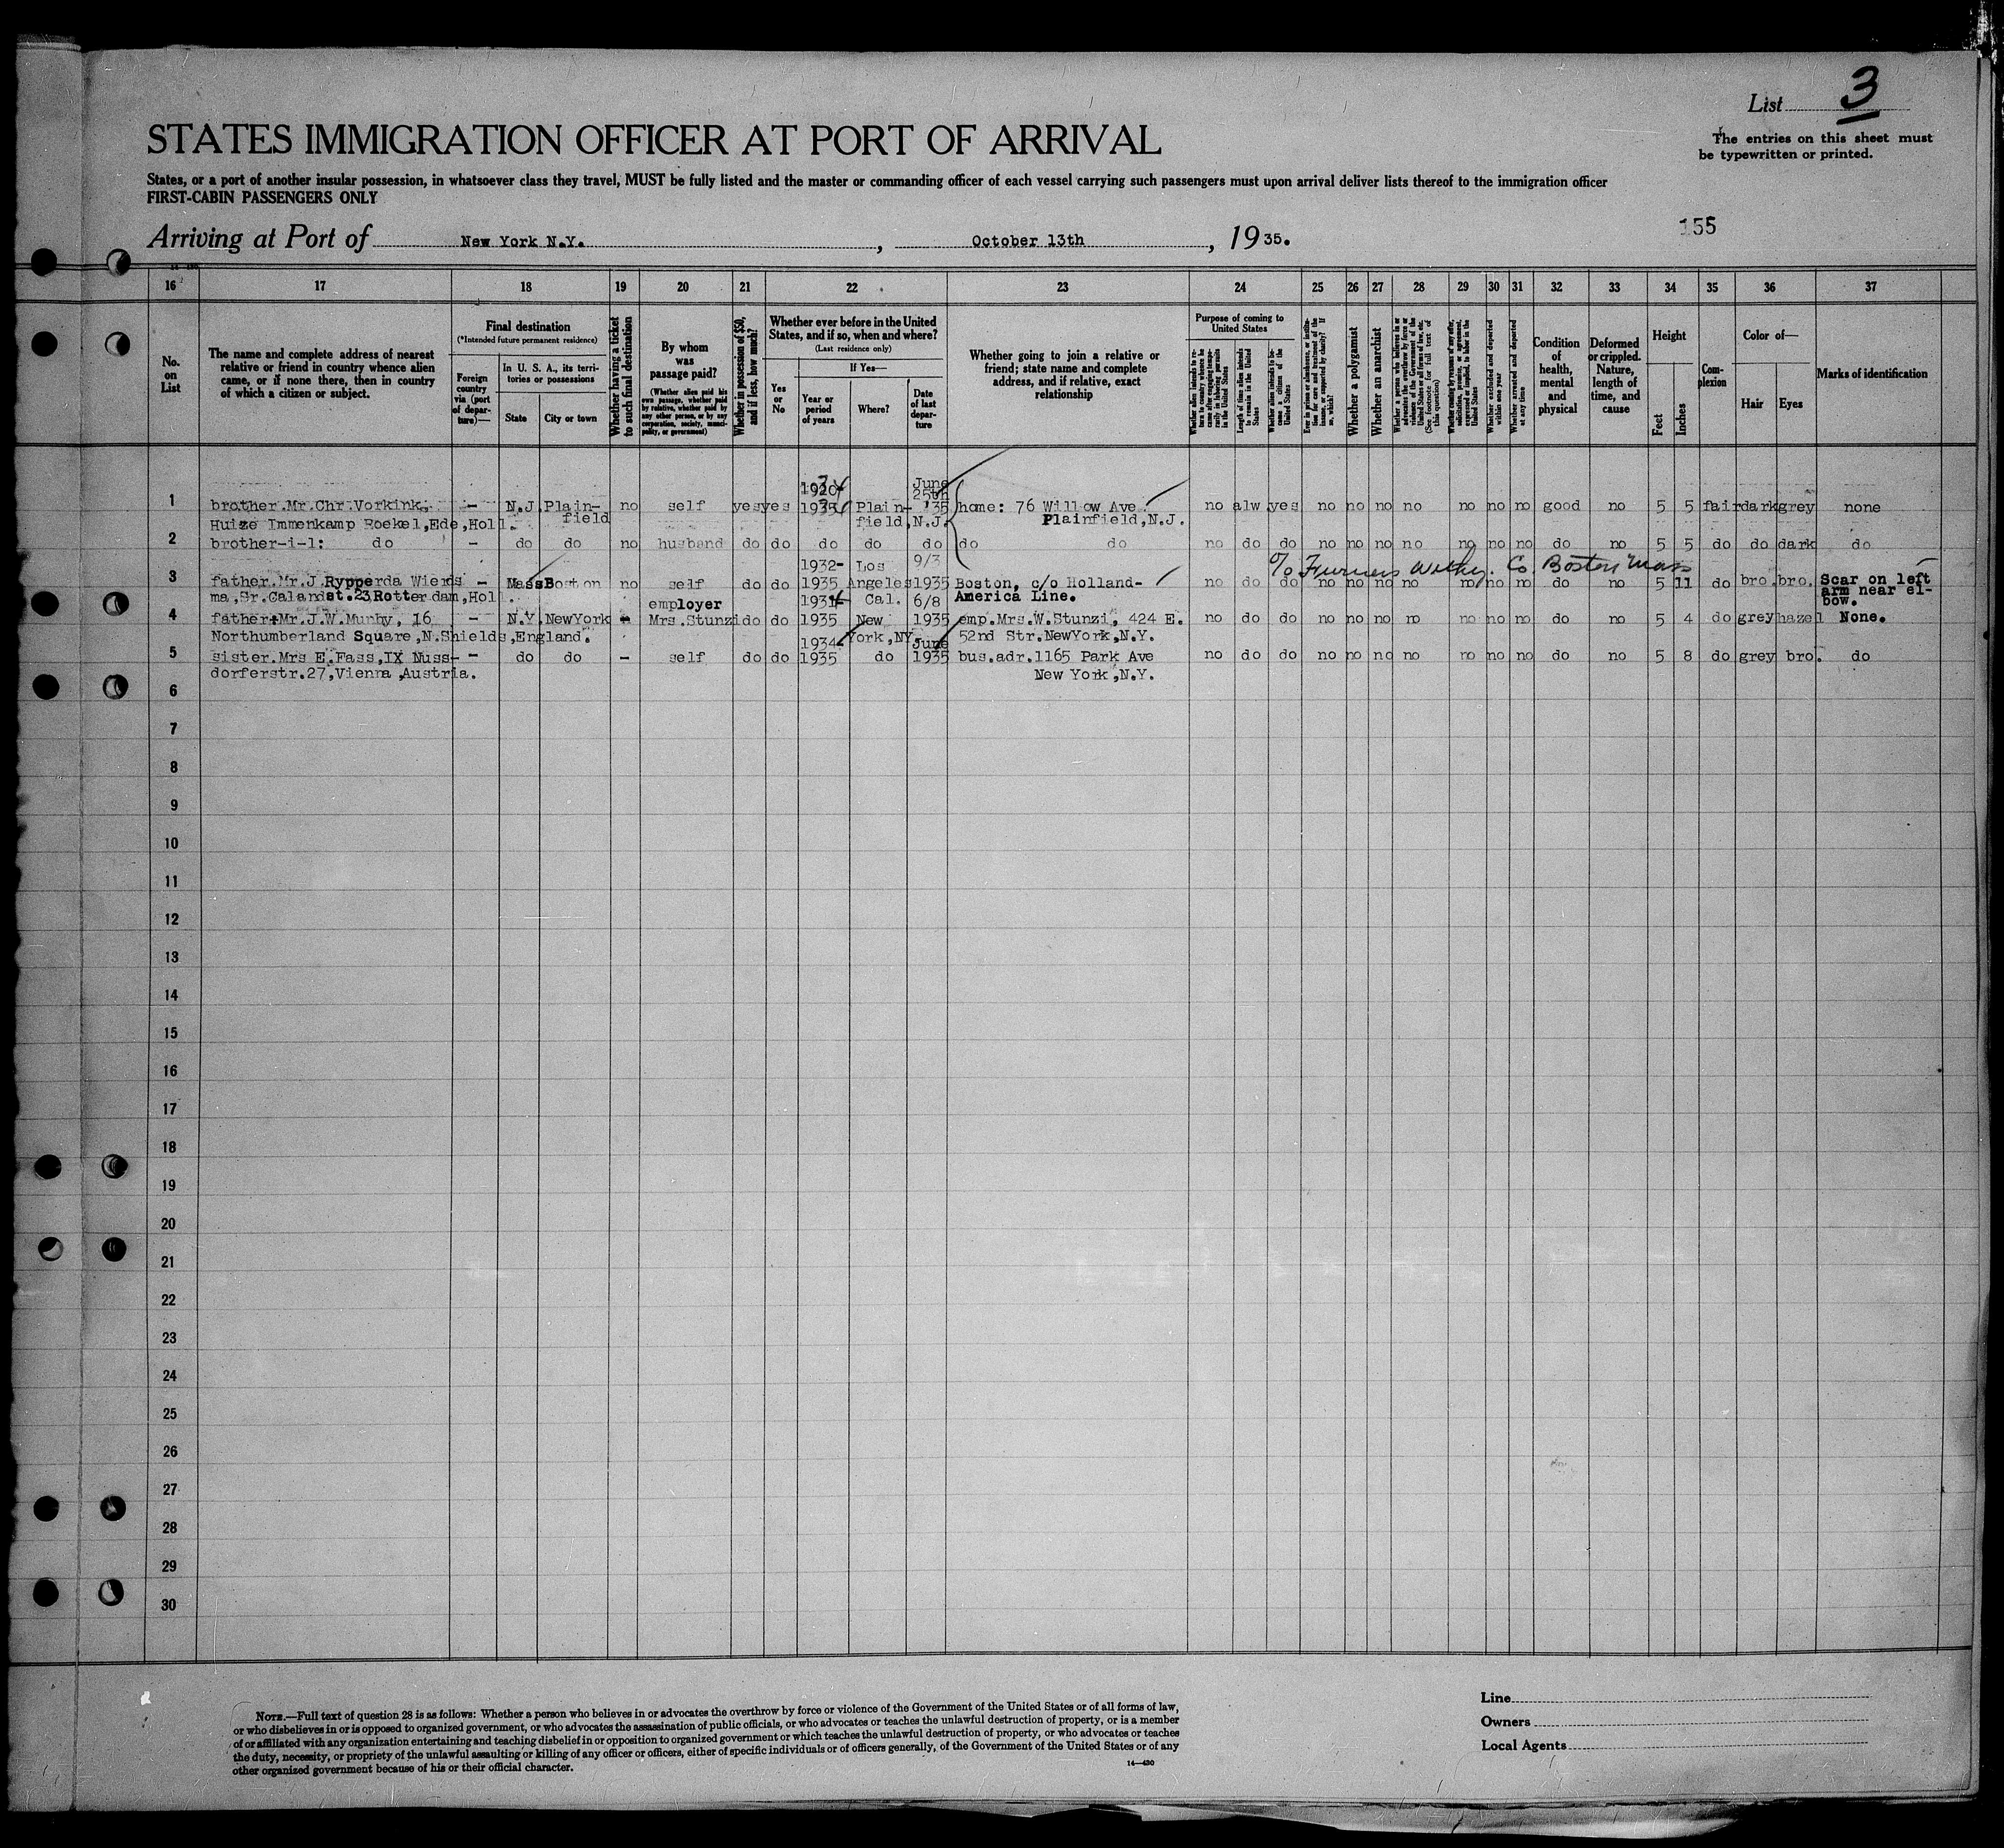 List 3
The entries on this sheet must
be typewritten or printed.
STATES IMMIGRATION OFFICER AT PORT OF ARRIVAL
States, or a port of another insular possession, in whatsoever class they travel, MUST be fully listed and the master or commanding officer of each vessel carrying such passengers must upon arrival deliver lists thereof to the immigration officer
FIRST-CABIN PASSENGERS ONLY
155
Arriving at Port of New York N.Y. , October 13th , 1935.
16 17 18 19 20 21 22 23 24 25 26 27 28 29 30 31 32 33 34 35 36 37
No. on List
The name and complete address of nearest
relative or friend in country whence alien
came, or if none there, then in country
of which a citizen or subject.
Final destination
(*Intended future permanent residence)
Foreign country via (port of departure)—
In U. S. A., its territories or possessions
State
City or town
Whether having a ticket to such final destination
By whom was passage paid?
(Whether alien paid his own passage, whether paid by relative, whether paid by any other person, or by any corporation, society, municipality, or government)
Whether in possession of $50, and if less, how much?
Whether ever before in the United States, and if so, when and where?
(Last residence only)
Yes or No
If Yes—
Year or period of years
Where?
Date of last departure
Whether going to join a relative or
friend; state name and complete
address, and if relative, exact
relationship
Purpose of coming to United States
Whether alien intends to return to country whence he came after engaging temporarily in laboring pursuits in the United States
Length of time alien intends to remain in the United States
Whether alien intends to become a citizen of the United States
Ever in prison or almshouse, or institution for care and treatment of the insane, or supported by charity? If so, which?
Whether a polygamist
Whether an anarchist
Whether a person who believes in or advocates the overthrow by force or violence of the Government of the United States or all forms of law, etc. (See footnote for full text of this question)
Whether coming by reason of any offer, solicitation, promise, or agreement, expressed or implied, to labor in the United States
Whether excluded and deported within one year
Whether arrested and deported at any time
Condition of health, mental and physical
Deformed or crippled. Nature, length of time, and cause
Height
Feet
Inches
Complexion
Color of—
Hair
Eyes
Marks of identification
1 brother.Mr.Chr.Vorkink, – N.J. Plainfield no self yes yes 1920- 1935 Plainfield,N.J. June 25th '35 home: 76 Willow Ave Plainfield,N.J. no alw yes no no no no no no no good no 5 5 fair dark grey none
Huize Immenkamp Roekel,Ede,Holl.
2 brother-i-l: do – do do no husband do do do do do do do no do do no no no no no no no do no 5 5 do do dark do
c/o Furness Withy. Co. Boston Mass
3 father.Mr.J.Rypperda Wierds – Mass Boston no self do do 1932- 1935 Los Angeles Cal. 9/3 1935 Boston, c/o Holland- America Line. no do do no no no no no no no do no 5 11 do bro. bro. Scar on left arm near elbow.
ma,Sr.Calandst.23,Rotterdam,Holl.
4 father+Mr.J.W.Munby, 16 – N.Y. NewYork employer Mrs.Stunzi do do 1931- 1935 New York,NY. 6/8 1935 emp.Mrs.W.Stunzi, 424 E. 52nd Str.NewYork,N.Y. no do do no no no no no no no do no 5 4 do grey hazel None.
Northumberland Square,N.Shields,England.
5 sister.Mrs E.Fass,IX Nuss- – do do – self do do 1934- 1935 do June 1935 bus.adr.1165 Park Ave New York,N.Y. no do do no no no no no no no do no 5 8 do grey bro. do
dorferstr.27,Vienna,Austria.
6
7
8
9
10
11
12
13
14
15
16
17
18
19
20
21
22
23
24
25
26
27
28
29
30
NOTE.—Full text of question 28 is as follows: Whether a person who believes in or advocates the overthrow by force or violence of the Government of the United States or of all forms of law,
or who disbelieves in or is opposed to organized government, or who advocates the assassination of public officials, or who advocates or teaches the unlawful destruction of property, or is a member
of or affiliated with any organization entertaining and teaching disbelief in or opposition to organized government or which teaches the unlawful destruction of property, or who advocates or teaches
the duty, necessity, or propriety of the unlawful assaulting or killing of any officer or officers, either of specific individuals or of officers generally, of the Government of the United States or of any
other organized government because of his or their official character.
14—430
Line
Owners
Local Agents